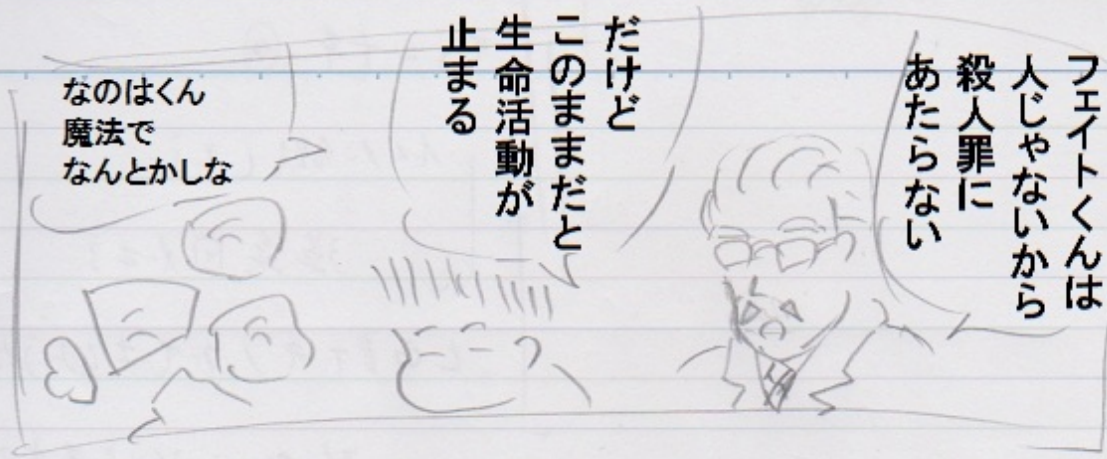 フェイトくんは
人じゃないから
殺人罪に
あたらない
だけど
このままだと
生命活動が
止まる
なのはくん
魔法で
なんとかしな